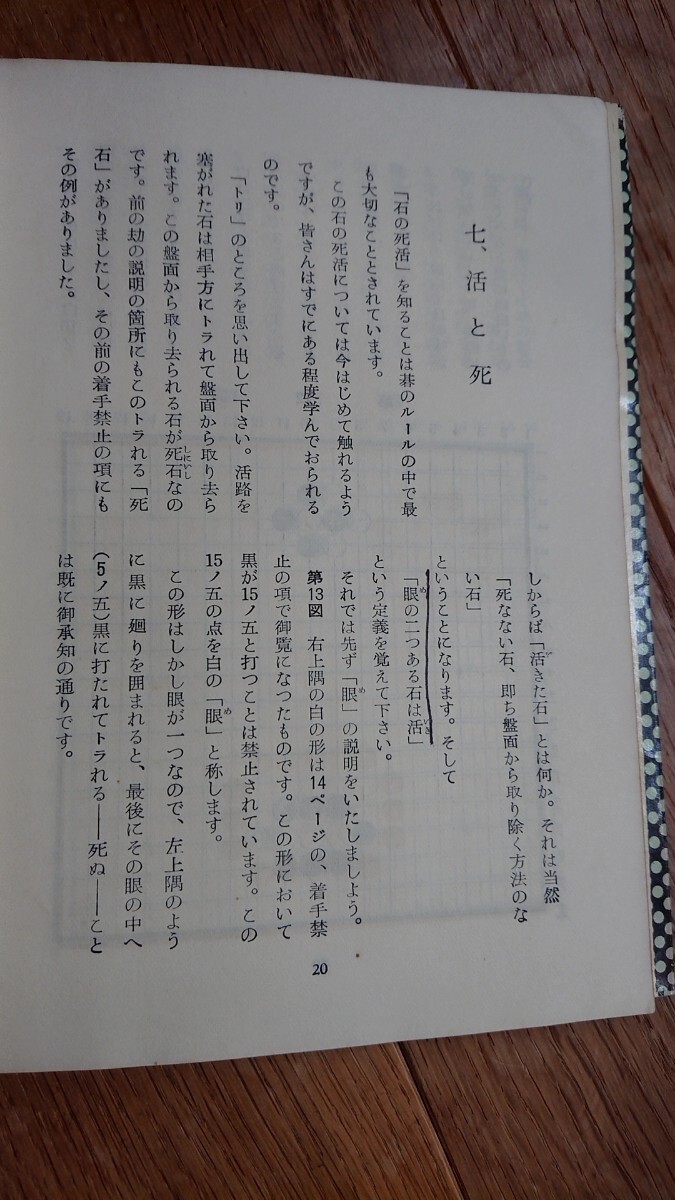 七、活と死
「石の死活」を知ることは碁のルールの中で最
も大切なこととされています。
この石の死活については今はじめて触れるよう
ですが、皆さんはすでにある程度学んでおられる
のです。
「トリ」のところを思い出して下さい。活路を
塞がれた石は相手方にトラれて盤面から取り去ら
れます。この盤面から取り去られる石が死石なの
しにいし
です。前の劫の説明の箇所にもこのトラれる「死
石」がありましたし、その前の着手禁止の項にも
その例がありました。
しからば「活きた石」とは何か。それは当然
い
「死なない石、即ち盤面から取り除く方法のな
い石」
ということになります。そして
「眼の二つある石は活」
め
いき
という定義を覚えて下さい。
それでは先ず「眼」の説明をいたしましょう。
め
第13図　右上隅の白の形は14ページの、着手禁
止の項で御覧になつたものです。この形において
黒が15ノ五と打つことは禁止されています。この
15ノ五の点を白の「眼」と称します。
め
この形はしかし眼が一つなので、左上隅のよう
に黒に廻りを囲まれると、最後にその眼の中へ
(5ノ五)黒に打たれてトラれる――死ぬ――こと
は既に御承知の通りです。
20